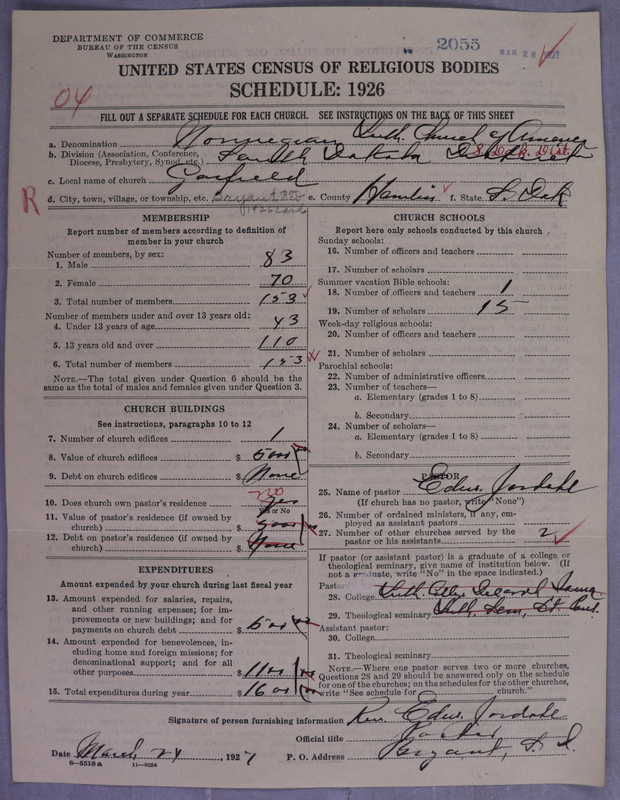 DEPARTMENT OF COMMERCE
BUREAU OF THE CENSUS
WASHINGTON
2055
MAR 28 1927
UNITED STATES CENSUS OF RELIGIOUS BODIES
SCHEDULE: 1926
04
FILL OUT A SEPARATE SCHEDULE FOR EACH CHURCH. SEE INSTRUCTIONS ON THE BACK OF THIS SHEET
a. Denomination Norwegian Luth. Church of America
b. Division (Association, Conference, Diocese, Presbytery, Synod, etc.) South Dakota S. Dak. Dist.
c. Local name of church Garfield
R
d. City, town, village, or township, etc. Bryant e. County Hamlin f. State S. Dak
MEMBERSHIP
Report number of members according to definition of member in your church
Number of members, by sex:
1. Male 83
2. Female 70
3. Total number of members 153
Number of members under and over 13 years old:
4. Under 13 years of age 43
5. 13 years old and over 110
6. Total number of members 153
NOTE.—The total given under Question 6 should be the same as the total of males and females given under Question 3.
CHURCH BUILDINGS
See instructions, paragraphs 10 to 12
7. Number of church edifices 1
8. Value of church edifices $
9. Debt on church edifices $ None
10. Does church own pastor's residence no yes
Yes or No
11. Value of pastor's residence (if owned by church) $
12. Debt on pastor's residence (if owned by church) $ None
EXPENDITURES
Amount expended by your church during last fiscal year
13. Amount expended for salaries, repairs, and other running expenses; for improvements or new buildings; and for payments on church debt $
14. Amount expended for benevolences, including home and foreign missions; for denominational support; and for all other purposes $
15. Total expenditures during year $
CHURCH SCHOOLS
Report here only schools conducted by this church
Sunday schools:
16. Number of officers and teachers
17. Number of scholars
Summer vacation Bible schools:
18. Number of officers and teachers 1
19. Number of scholars 15
Week-day religious schools:
20. Number of officers and teachers
21. Number of scholars
Parochial schools:
22. Number of administrative officers
23. Number of teachers—
a. Elementary (grades 1 to 8)
b. Secondary
24. Number of scholars—
a. Elementary (grades 1 to 8)
b. Secondary
PASTOR
25. Name of pastor Edw. Jordahl
(If church has no pastor, write "None")
26. Number of ordained ministers, if any, employed as assistant pastors
27. Number of other churches served by the pastor or his assistants 2
If pastor (or assistant pastor) is a graduate of a college or theological seminary, give name of institution below. (If not a graduate, write "No" in the space indicated.)
Pastor:
28. College Luth. College Decorah Iowa
29. Theological seminary Luth. Sem. St. Paul
Assistant pastor:
30. College
31. Theological seminary
NOTE.—Where one pastor serves two or more churches, Questions 28 and 29 should be answered only on the schedule for one of the churches; on the schedules for the other churches, write "See schedule for church."
Signature of person furnishing information Rev. Edw. Jordahl
Official title Pastor
Date March 24, 1927
P. O. Address Bryant, S. D.
8—5518 a 11—9084